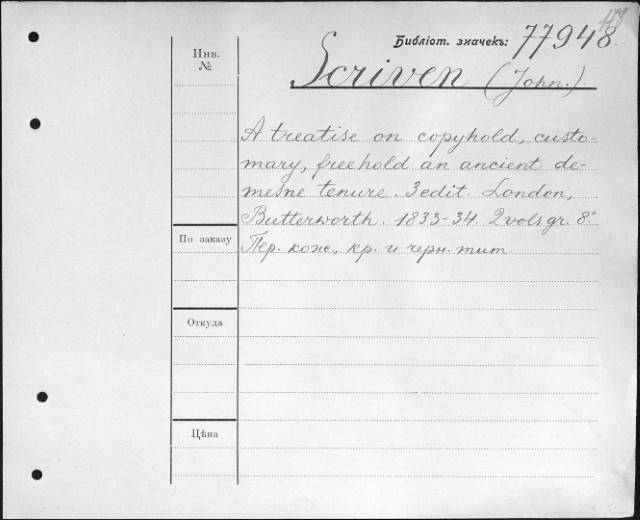 Библіот. значекъ: 77948.
Инв. №
Scriven (John.)
A treatise on copyhold, custo-
mary, freehold an ancient de-
mesne tenure. 3 edit. London,
Butterworth. 1833-34. 2 vols gr. 8.°
По заказу
Пер. кож., кр. и черн. тит.
Откуда
Цѣна